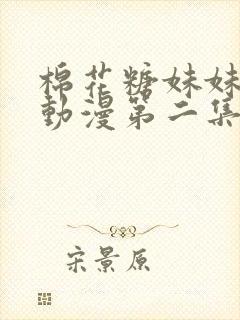 棉花糖妹妹
動漫第二集
宋景原